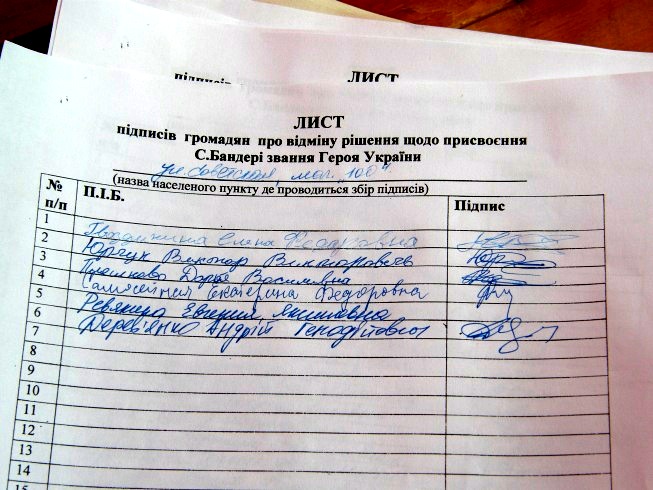 підписів ЛИСТ
ЛИСТ
підписів громадян про відміну рішення щодо присвоєння
С.Бандері звання Героя України
ул. Советская, маг. "100"
(назва населеного пункту де проводиться збір підписів)
№ п/п П.І.Б. Підпис
1
2 Елена Федоровна
3 Юрчук Виктор Викторович
4 Дарья Васильевна
5 Екатерина Федоровна
6 Ревякина Евгения
7 Дерев'янко Андрій Генадійович
8
9
10
11
12
13
14
15